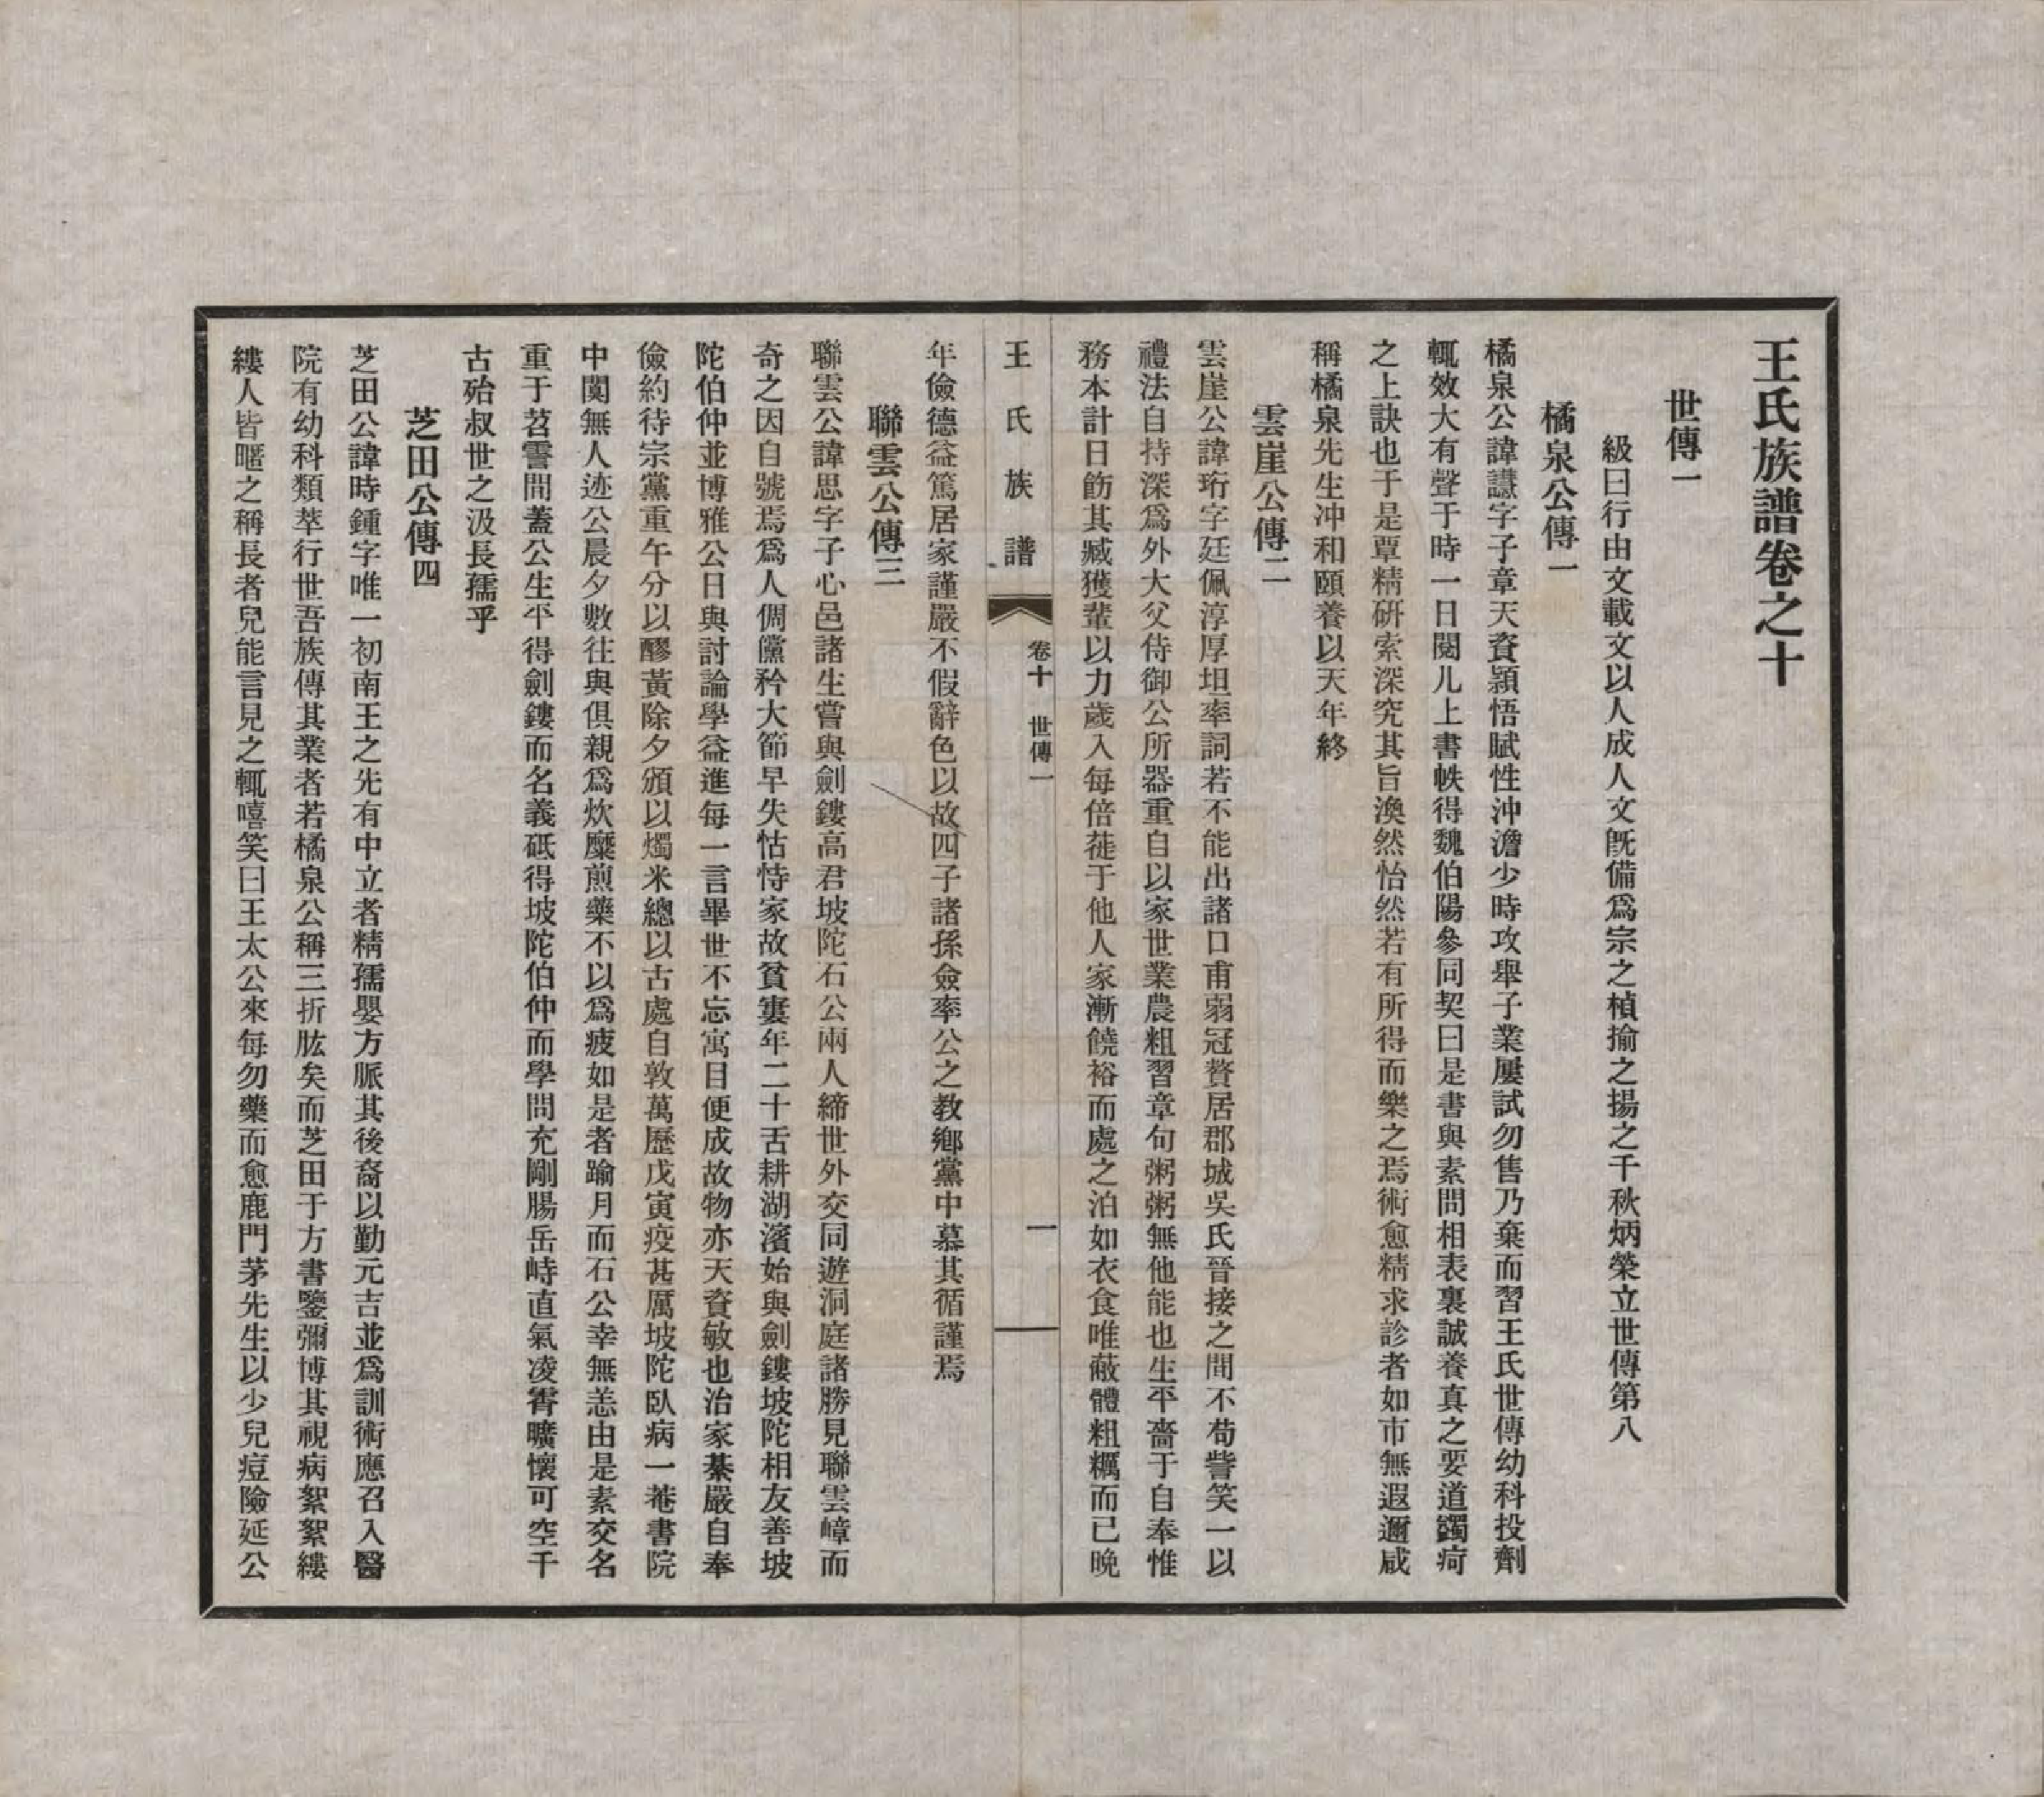 王氏族譜卷之十
世傳一
級曰行由文載文以人成人文既備爲宗之楨揄之揚之千秋炳榮立世傳第八
橘泉公傳一
橘泉公諱譿字子章天資穎悟賦性沖澹少時攻舉子業屢試勿售乃棄而習王氏世傳幼科投劑
輒效大有聲于時一日閱几上書帙得魏伯陽參同契曰是書與素問相表裏誠養真之要道蠲疴
之上訣也于是覃精研索深究其旨渙然怡然若有所得而樂之焉術愈精求診者如市無遐邇咸
稱橘泉先生沖和頤養以天年終
雲崖公傳二
雲崖公諱珩字廷佩淳厚坦率詞若不能出諸口甫弱冠贅居郡城吳氏晉接之間不苟訾笑一以
禮法自持深爲外大父侍御公所器重自以家世業農粗習章句粥粥無他能也生平嗇于自奉惟
務本計日飭其臧獲輩以力歲入每倍蓰于他人家漸饒裕而處之泊如衣食唯蔽體粗糲而已晚
王氏族譜 卷十 世傳一 一
年儉德益篤居家謹嚴不假辭色以故四子諸孫僉率公之教鄉黨中慕其循謹焉
聯雲公傳三
聯雲公諱思字子心邑諸生嘗與劍鏤高君坡陀石公兩人締世外交同遊洞庭諸勝見聯雲嶂而
奇之因自號焉爲人倜儻矜大節早失怙恃家故貧寠年二十舌耕湖濱始與劍鏤坡陀相友善坡
陀伯仲並博雅公日與討論學益進每一言畢世不忘寓目便成故物亦天資敏也治家綦嚴自奉
儉約待宗黨重午分以醪黃除夕頒以燭米總以古處自敦萬歷戊寅疫甚厲坡陀臥病一菴書院
中闃無人迹公晨夕數往與俱親爲炊糜煎藥不以爲疲如是者踰月而石公幸無恙由是素交名
重于苕霅間蓋公生平得劍鏤而名義砥得坡陀伯仲而學問充剛腸岳峙直氣凌霄曠懷可空千
古殆叔世之汲長孺乎
芝田公傳四
芝田公諱時鍾字唯一初南王之先有中立者精孺嬰方脈其後裔以勤元吉並爲訓術應召入醫
院有幼科類萃行世吾族傳其業者若橘泉公稱三折肱矣而芝田于方書鑒彌博其視病絮絮縷
縷人皆暱之稱長者兒能言見之輒嘻笑曰王太公來每勿藥而愈鹿門茅先生以少兒痘險延公